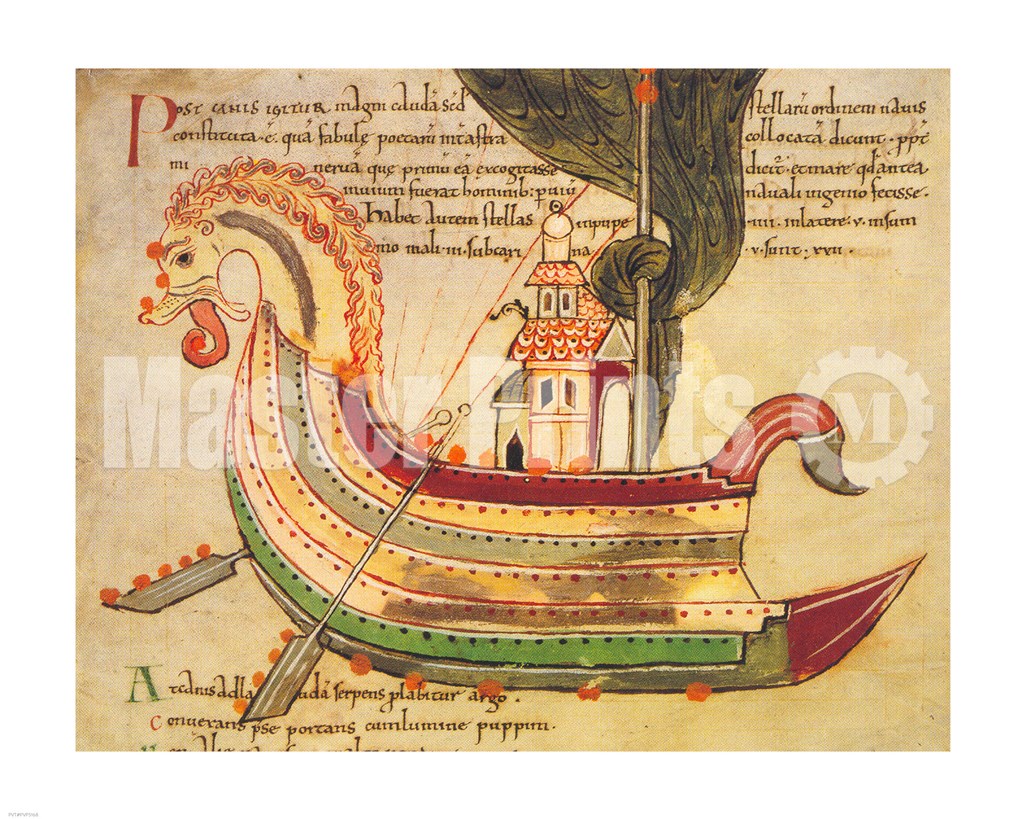 Post canis igitur magni caudā scd̄ stellarū ordinem nauis
constituta · ē · quā fabulę poetarū int̄ astra collocatā dicunt · ꝓpt̄
mi neruā quę primū eā excogitasse dicit̄ · et mare qd̄ antea
inuium fuerat hominib; ꝑuiū nauali ingenio fecisse ·
habet autem stellas in pupe · iiii · in latere · v · in sum
mo mali · iii · sub cari na · v · sunt · xxii ·
Master Prints
M
At canis ad caudā serpens ꝓlabitur argo ·
conuersam p̄se portans cum lumine puppim ·